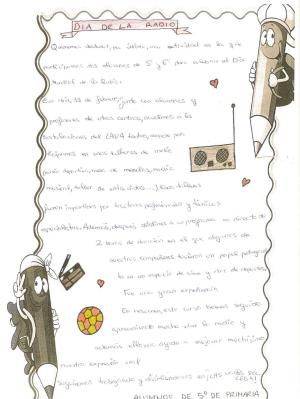 DIA DE LA RADIO
Queremos destacar, por último, una actividad en la que
participamos los alumnos de 5º y 6º para celebrar el Día
Mundial de la Radio.
Ese día, 13 de febrero, junto con alumnos y
profesores de otros centros, acudimos a las
instalaciones del LAVA teatro,
talleres de radio
radio deportiva, mesa de mezclas, radio
musical, taller de entrevistas...) Esos talleres
fueron impartidos por locutores profesionales y técnicos
especialistas. Además, después asistimos a un programa en directo de
2 horas de duración en el que algunos de
nuestros compañeros tuvieron un papel protagonista
en un espacio de cine y otro de deportes.
Fue una gran experiencia.
En resumen, este curso hemos seguido
aprendiendo mucho sobre la radio y
además ayuda a mejorar muchísimo
nuestra expresión oral
Seguiremos trabajando y ¡LAS ONDAS DEL
ALUMNOS DE 5º DE PRIMARIA